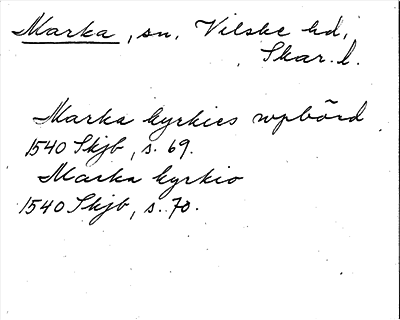 Marka, sn. Vilske hd,
Skar. l.
Marka kyrkies wpbörd
1540 Skjb, s. 69.
Marka kyrkio
1540 Skjb, s. 70.